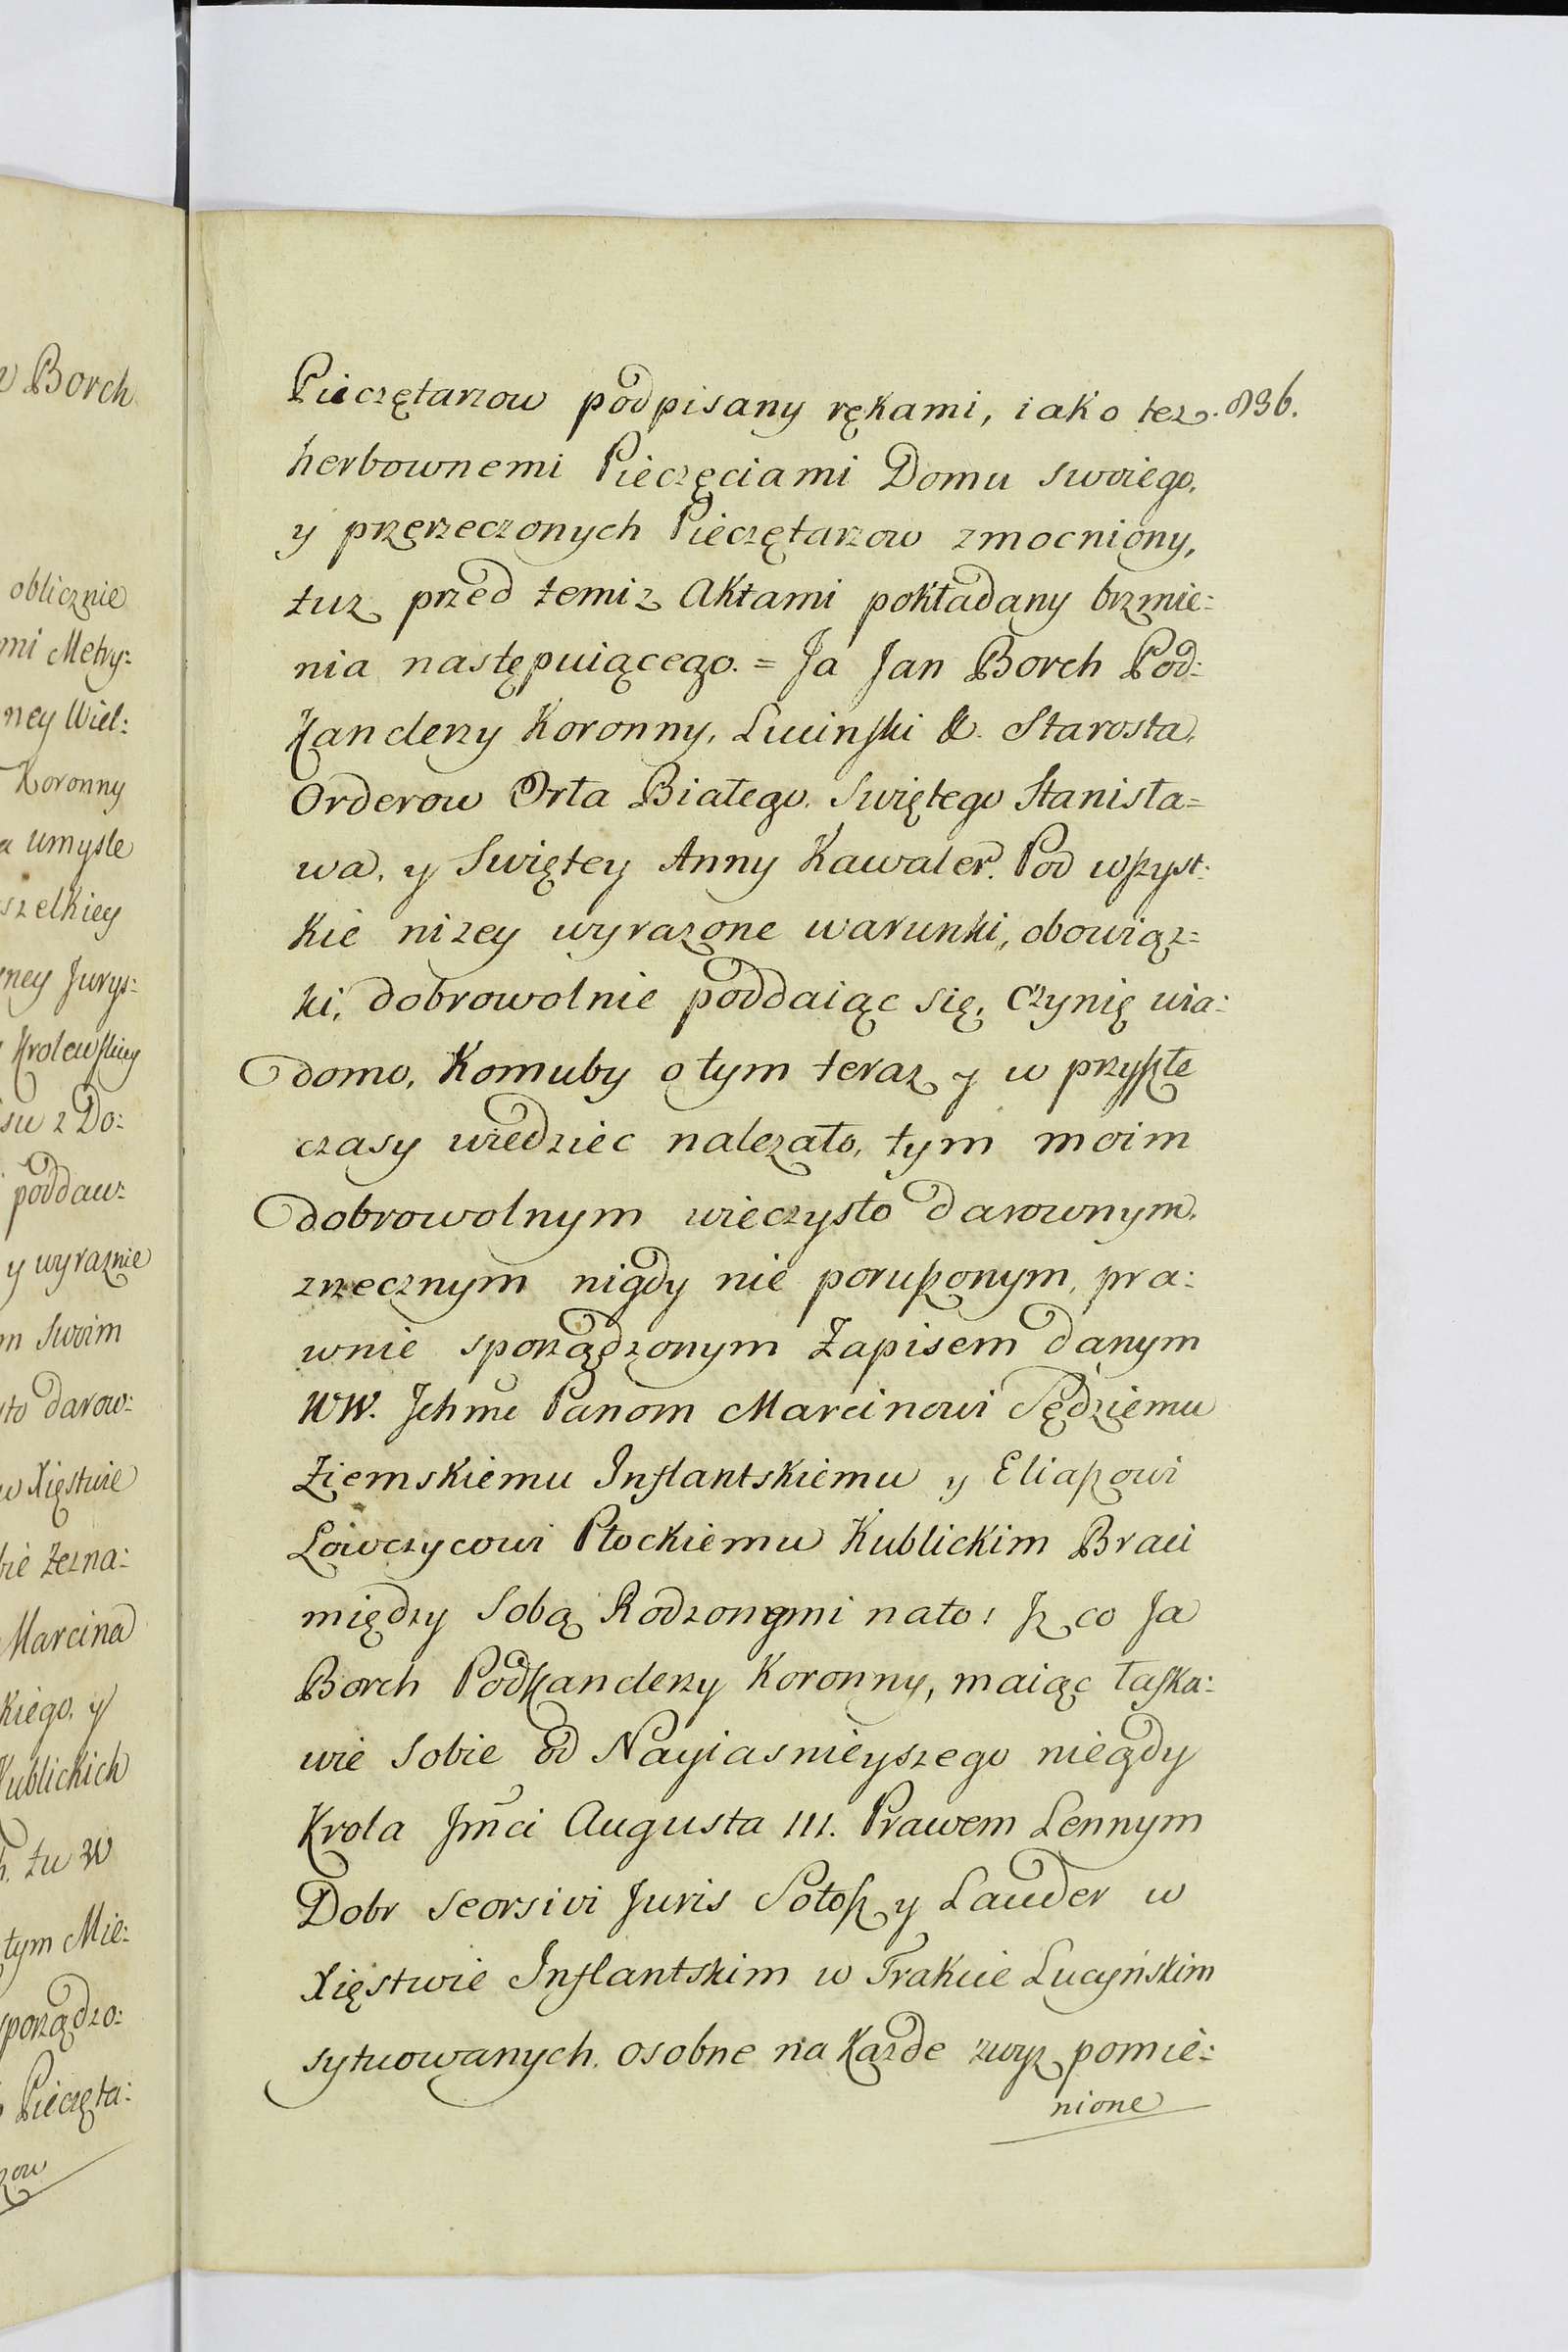 Pieczętarzow podpisany rękami, iako tez. 836.
herbownemi Pieczęciami Domu swoiego,
y przerzeczonych Pieczętarzow zmocniony,
tuz przed temiz Aktami pokładany brzmie:
nia następuiącego. = Ja Jan Borch Pod:
Kanclerzy Koronny, Lucinski &. Starosta,
Orderow Orła Białego. Swiętego Stanisła=
wa, y Swiętey Anny Kawaler. Pod wszyst:
kie nizey wyrazone warunki, obowiąz=
ki, dobrowolnie poddaiąc się, Czynię wia:
domo, Komuby o tym teraz y w przyszłe
czasy wiedziec nalezało, tym moim
dobrowolnym wieczysto darownym,
zrzecznym nigdy nie poruszonym, pra:
wnie sporządzonym Zapisem danym
WW. Jchmc Panom Marcinowi Sędziemu
Ziemskiemu Inflantskiemu y Eliaszowi
Łowczycowi Płockiemu Kublickim Braci
między Sobą Rodzonymi nato: Jz co Ja
Borch PodKanclerzy Koronny, maiąc łaska:
wie Sobie od Nayiasnieyszego niegdy
Krola Jmci Augusta III. Prawem Lennym
Dobr Seorsivi Juris Sołosz y Lauder w
Xięstwie Inflantskim w Trakcie Lucyńskim
sytuowanych, osobne na Kazde zwyz pomie:
nione
w Borch
oblicznie
mi Metry:
ney Wiel:
Koronny
a umysle
szelkiey
ney Jurys:
Krolewskiey
su z Do:
poddaw:
y wyraznie
m Swoim
sto darow:
w Xięstwie
bie Zezna:
Marcina
kiego, y
Kublickich
h. tu w
tym Mie:
sporządzo:
Pieczęta:
rzow